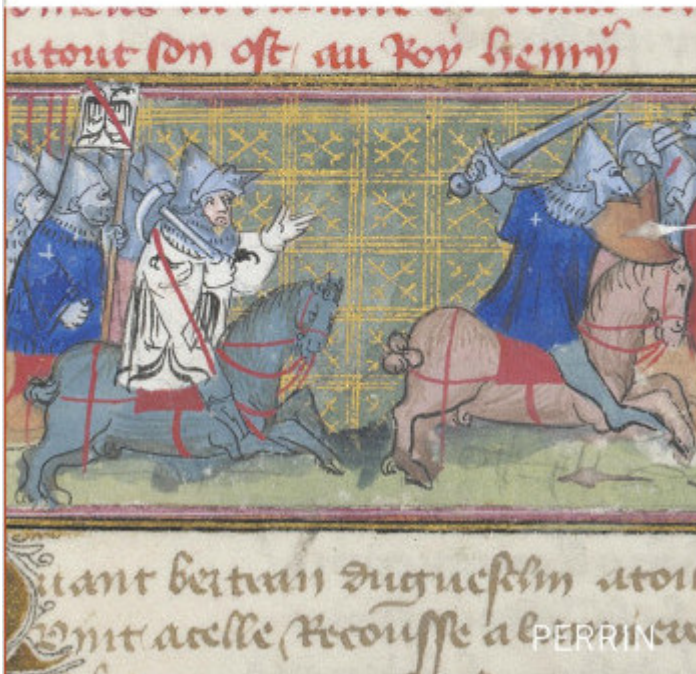 atout son ost au Roy henry
Quant bertran duguesclin atou
Vint acelle Recousse a
PERRIN